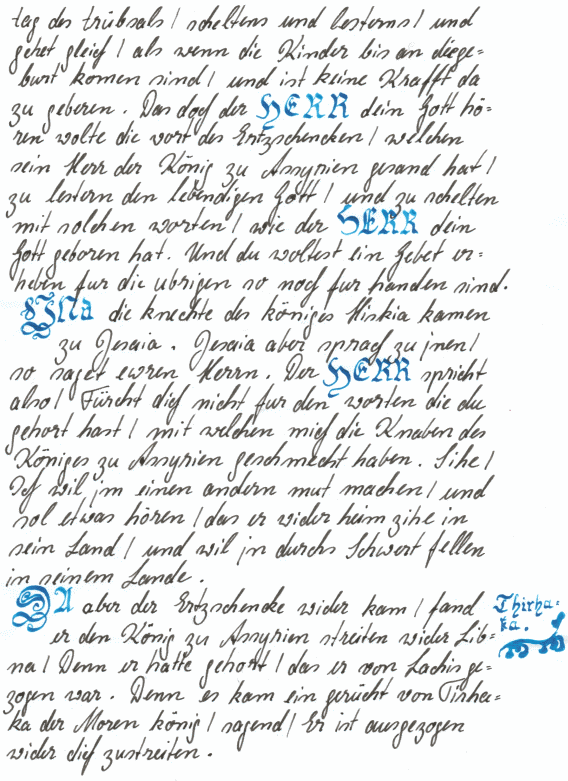 tag des trübsals / scheltens und lesterns / und
gehet gleich / als wenn die Kinder bis an die ge=
burt komen sind / und ist keine Krafft da
zu geberen. Das doch der HERR dein Gott hö=
ren wolte die wort des Ertzschencken / welchen
sein Herr der König zu Assyrien gesand hat /
zu lestern den lebendigen Gott / und zu schelten
mit solchen worten / wie der HERR dein
Gott gehoret hat. Und du woltest ein Gebet er=
heben fur die ubrigen so noch fur handen sind.
UNd die knechte des königes Hiskia kamen
zu Jesaia. Jesaia aber sprach zu jnen /
so saget ewren Herrn. Der HERR spricht
also / Fürcht dich nicht fur den worten die du
gehort hast / mit welchen mich die Knaben des
Königes zu Assyrien geschmecht haben. Sihe /
Jch wil jm einen andern mut machen / und
sol etwas hören / das er wider heim zihe in
sein Land / und wil jn durchs Schwert fellen
in seinem Lande.
DA aber der Ertzschencke wider kam / fand
er den König zu Assyrien streiten wider Lib=
na / Denn er hatte gehort / das er von Lachis ge=
zogen war. Denn es kam ein gerücht von Tirha=
ka der Moren könig / sagend / Er ist ausgezogen
wider dich zustreiten.
Thirha=
ka.